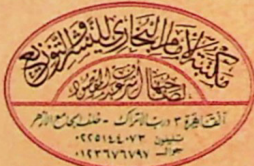 مكتبة الإمام البخاري للنشر والتوزيع
لصاحبها أشرف عبد المقصود
القاهرة ٣ درب الأتراك - خلف الجامع الأزهر
تليفون ٠٢٢٥١٤٤٠٧٣
جوال ٠١٢٣٦٧٦٧٩٧